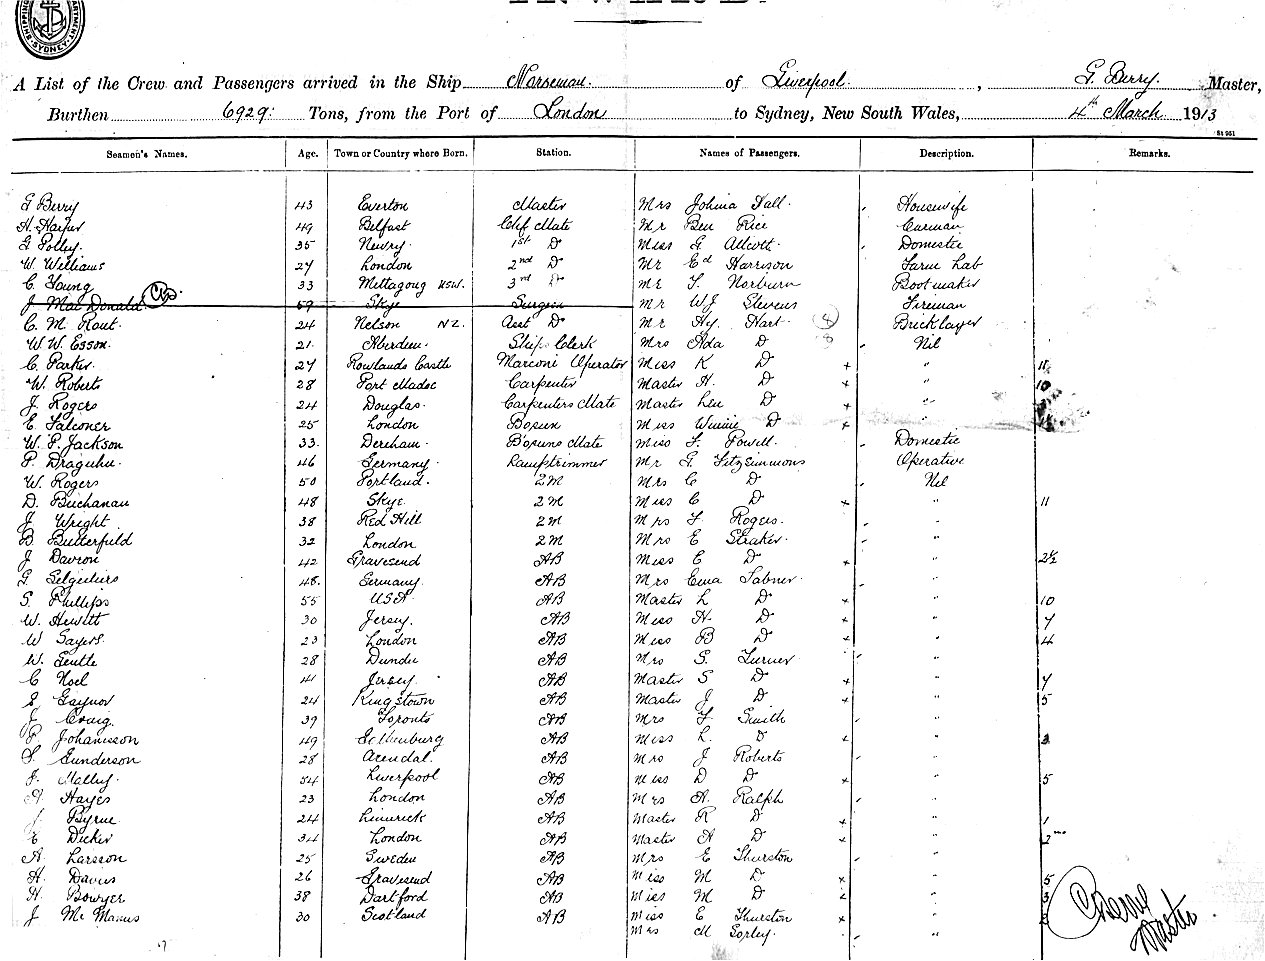 SYDNEY
A List of the Crew and Passengers arrived in the Ship Norseman. of Liverpool , G. Berry. Master,
Burthen 6929: Tons, from the Port of London to Sydney, New South Wales, 4th March 1913
St 951
Seamen's Names. Age. Town or Country where Born. Station. Names of Passengers. Description. Remarks.
G Berry 43 Everton Master Mrs Hall. Housewife
H. Harper 49 Belfast Chf Mate Mr Ben Rice Carman
G Polley. 35 Newry. 1st Do Miss G Allcott. Domestic
W. Williams 27 London 2nd Do Mr Ed Harrison Farm Lab
C Young 33 Mittagong NSW. 3rd Do Mr F. Norburn Bootmaker
J. Mac Donald 59 Skye Surgeon Mr WJ Stevens Fireman
C. M. Rout. 24 Nelson NZ. Asst Do Mr Hy. Hart 8 Bricklayer
W. W. Esson. 21. Aberdeen. Ships Clerk Mrs Ada Do 8 Nil
C. Parker. 27 Rowlands Castle Marconi Operator Miss K Do x " 11
W. Roberts 28 Port Madoc Carpenter Master H. Do x " 10
J. Rogers 24 Douglas. Carpenters Mate Master Len Do x "
E Falconer 25 London Bosun Miss Winnie Do x "
W. P. Jackson 33. Dereham. Bosuns Mate Miss F. Powell. Domestic
P. 46 Germany. Lamptrimmer Mr G. Fitzsimmons Operative
W. Rogers 50 Portland. 2M Mrs C Do Nil
D. Buchanan 48 Skye 2M Miss C Do x " 11
J. Wright. 38 Red Hill 2M Mrs F Rogers. "
B Butterfield 32 London 2M Mrs E Straker. "
J Davison 42 Gravesend AB Miss E Do x " 2½
G. 48. Germany. AB Mrs Ema Tabner. "
S. Phillips 55 USA AB Master L Do x " 10
W. Hewitt 30 Jersey. AB Miss H. Do x " 7
W Sayers. 23 London AB Miss B Do x " 4
W. 28 Dundee AB Mrs S. Turner "
C Noel 41 Jersey. AB Master S Do x " 7
E Gaynor 24 Kingstown AB Master J Do x " 5
J Craig. 39 Toronto AB Mrs F Smith "
P. Johansson 49 AB Miss L. Do x " 3
S. Gunderson 28 Arendal. AB Mrs J Roberts "
J. Malley. 54 Liverpool AB Miss D Do x " 5
A Hayes 23 London AB Mrs A. Ralph "
J. Byrne 24 Limerick AB Master R Do x " 1
E Dicker 34 London AB Master A Do x " 2
A. Larsson 25 Sweden AB Mrs E Thurston "
H. Davis 26 Gravesend AB Miss M Do x " 5
H. Bowyer 38 Dartford AB Miss M Do x " 3
J Mc Manus 30 Scotland AB Miss E Thurston x " 2
Mrs M Sorley. "
G Berry
Master